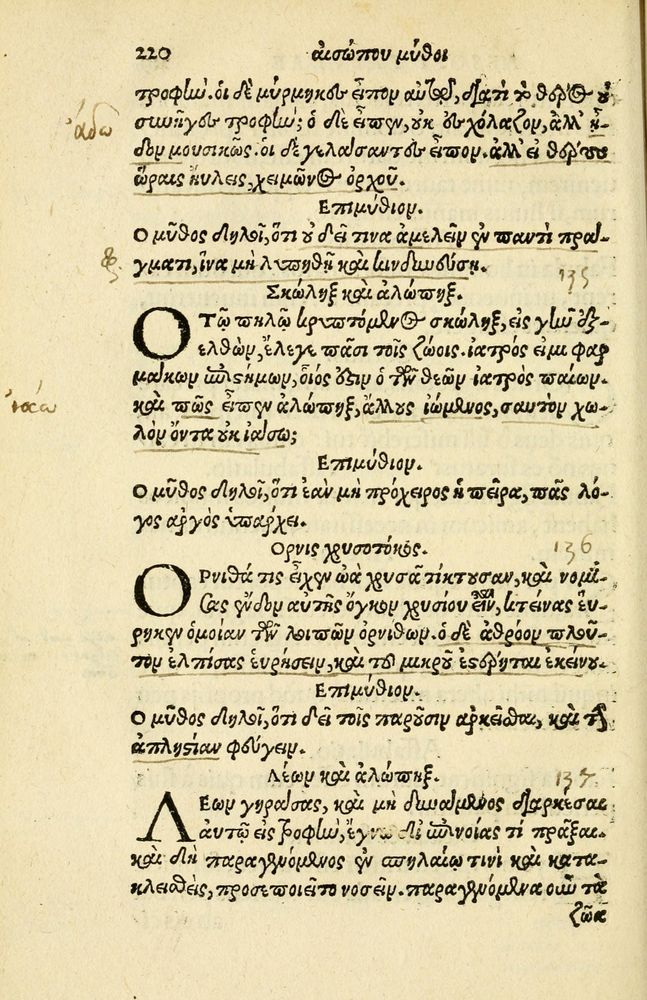 220 αισώπου μῦθοι
τροφίω. οἱ δὲ μύρμηκες εἶπον αὐτῷ, διατί τὸ θέρος οὐ
ᾄδω
συνῆγες τροφίω; ὁ δὲ εἶπεν, οὐκ ἐσχόλαζον, ἀλλ' ᾖ-
δον μουσικῶς. οἱ δὲ γελάσαντες εἶπον. ἀλλ' εἰ θέρους
ὥραις ηὔλεις, χειμῶνος ὀρχοῦ.
Επιμύθιον.
Ο μῦθος δηλοῖ, ὅτι οὐ δεῖ τινα ἀμελεῖν ἐν παντὶ πρά-
γματι, ἵνα μὴ λυπηθῇ καὶ κινδυνεύσῃ.
135
Σκώληξ καὶ ἀλώπηξ.
Ο Τῷ πηλῷ κρυπτόμενος σκώληξ, εἰς γῆν ἐξ-
ελθὼν, ἔλεγε πᾶσι τοῖς ζώοις. ἰατρός εἰμι φαρ
μάκων ἐπιστήμων, οἷός ἐστιν ὁ τῶν θεῶν ἰατρὸς παίων.
ἰάω
καὶ πῶς εἶπεν ἀλώπηξ, ἄλλους ἰώμενος, σαυτὸν χω-
λὸν ὄντα οὐκ ἰάσω;
Επιμύθιον.
Ο μῦθος δηλοῖ, ὅτι ἐὰν μὴ πρόχειρος ἡ πεῖρα, πᾶς λό-
γος ἀργὸς ὑπάρχει.
Ορνις χρυσοτόκος.
136
Ο Ρνιθά τις εἶχεν ὠὰ χρυσᾶ τίκτουσαν, καὶ νομί-
σας ἔνδον αὐτῆς ὄγκον χρυσίου εἶναι, κτείνας εὕ-
ρηκεν ὁμοίαν τῶν λοιπῶν ὀρνίθων. ὁ δὲ ἀθρόον πλοῦ-
τον ἐλπίσας εὑρήσειν, καὶ τοῦ μικροῦ ἐστέρηται ἐκείνου.
Επιμύθιον.
Ο μῦθος δηλοῖ, ὅτι δεῖ τοῖς παροῦσιν ἀρκεῖσθαι, καὶ τὴν
ἀπληστίαν φεύγειν.
Λέων καὶ ἀλώπηξ.
137
Λ Εων γηράσας, καὶ μὴ δυνάμενος διαρκέσαι
αὑτῷ εἰς τροφίω, ἔγνω δι' ἐπινοίας τί πρᾶξαι.
καὶ δὴ παραγενόμενος ἐν σπηλαίῳ τινὶ καὶ κατα-
κλειθεὶς, προσεποιεῖτο νοσεῖν. παραγενόμενα οὖν τὰ
ζῶα